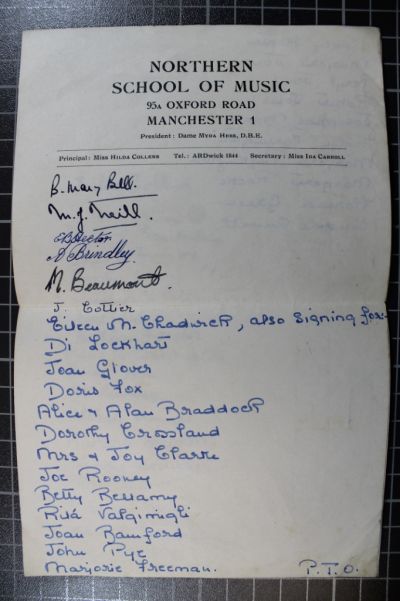 NORTHERN
SCHOOL OF MUSIC
95A OXFORD ROAD
MANCHESTER 1
President: Dame MYRA HESS, D.B.E.
Principal: Miss HILDA COLLENS Tel.: ARDwick 1844 Secretary: Miss IDA CARROLL
B. Mary Bell.
M. J. Naill.
E B Hector
A Brindley
M. Beaumont.
J. Cottier
Eileen M. Chadwick, also signing for:-
Di Lockhart
Joan Glover
Doris Fox
Alice & Alan Braddock
Dorothy Crossland
Mrs & Joy Clarke
Joe Rooney
Betty Bellamy
Rita Valgimigli
Joan Bamford
John Pye
Marjorie Freeman.
P.T.O.